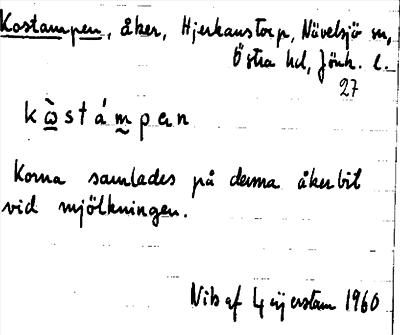 Kostampen, åker, Hjerkanstorp, Nävelsjö sn,
Östra hd, Jönk. l.
27
k ɷ̀ s t á m p ə n
Korna samlades på denna åkerbit
vid mjölkningen.
1960